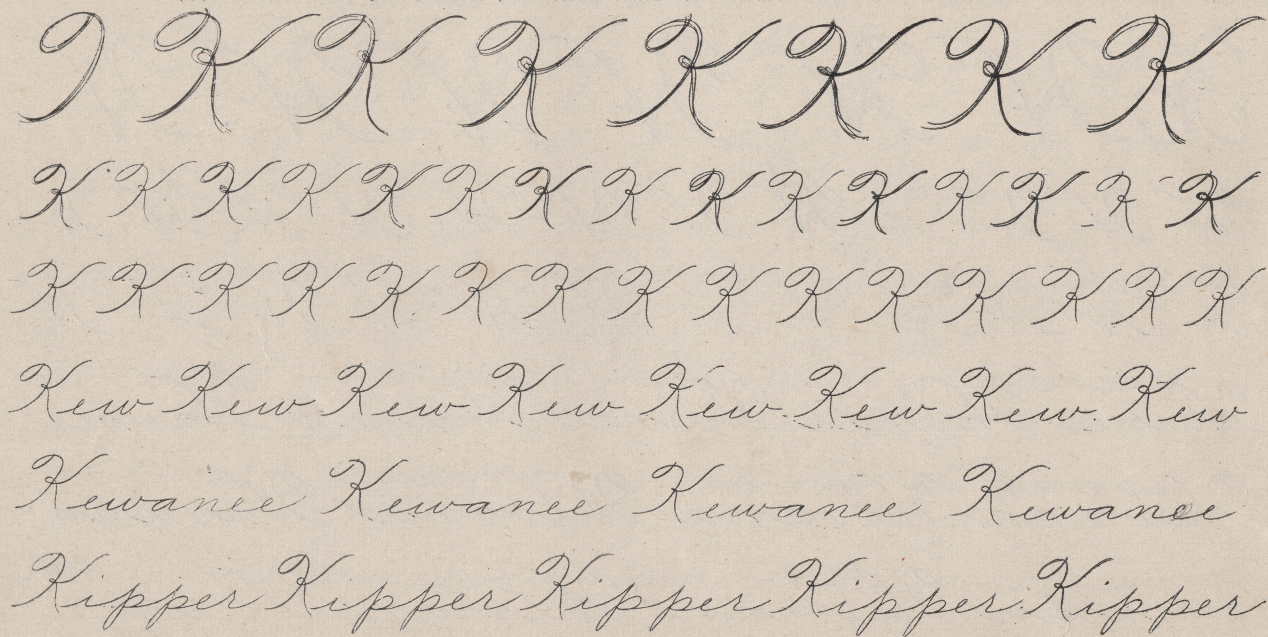 K K K K K K K
K K K K K K K K K K K K K K K
K K K K K K K K K K K K K K K
Kew Kew Kew Kew Kew Kew Kew Kew
Kewanee Kewanee Kewanee Kewanee
Kipper Kipper Kipper Kipper Kipper